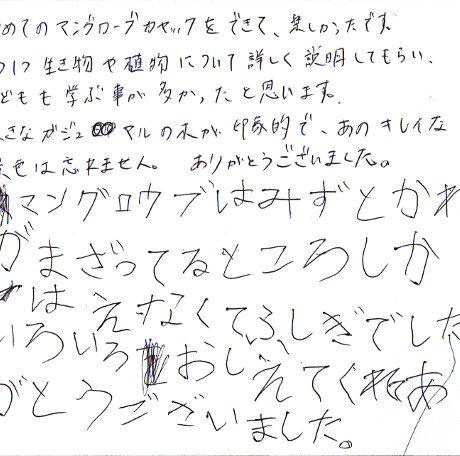 めてのマングローブカヤックをできて、楽しかったです。
生き物や植物について詳しく説明してもらい、
どもも学ぶ事が多かったと思います。
きなガジュマルの木が印象的で、あのキレイな
色は忘れません。 ありがとうございました。
マングロウブはみずとかわ
がまざってるところしか
はえなくてふしぎでした
いろいろおしえてくれてあ
がとうございました。